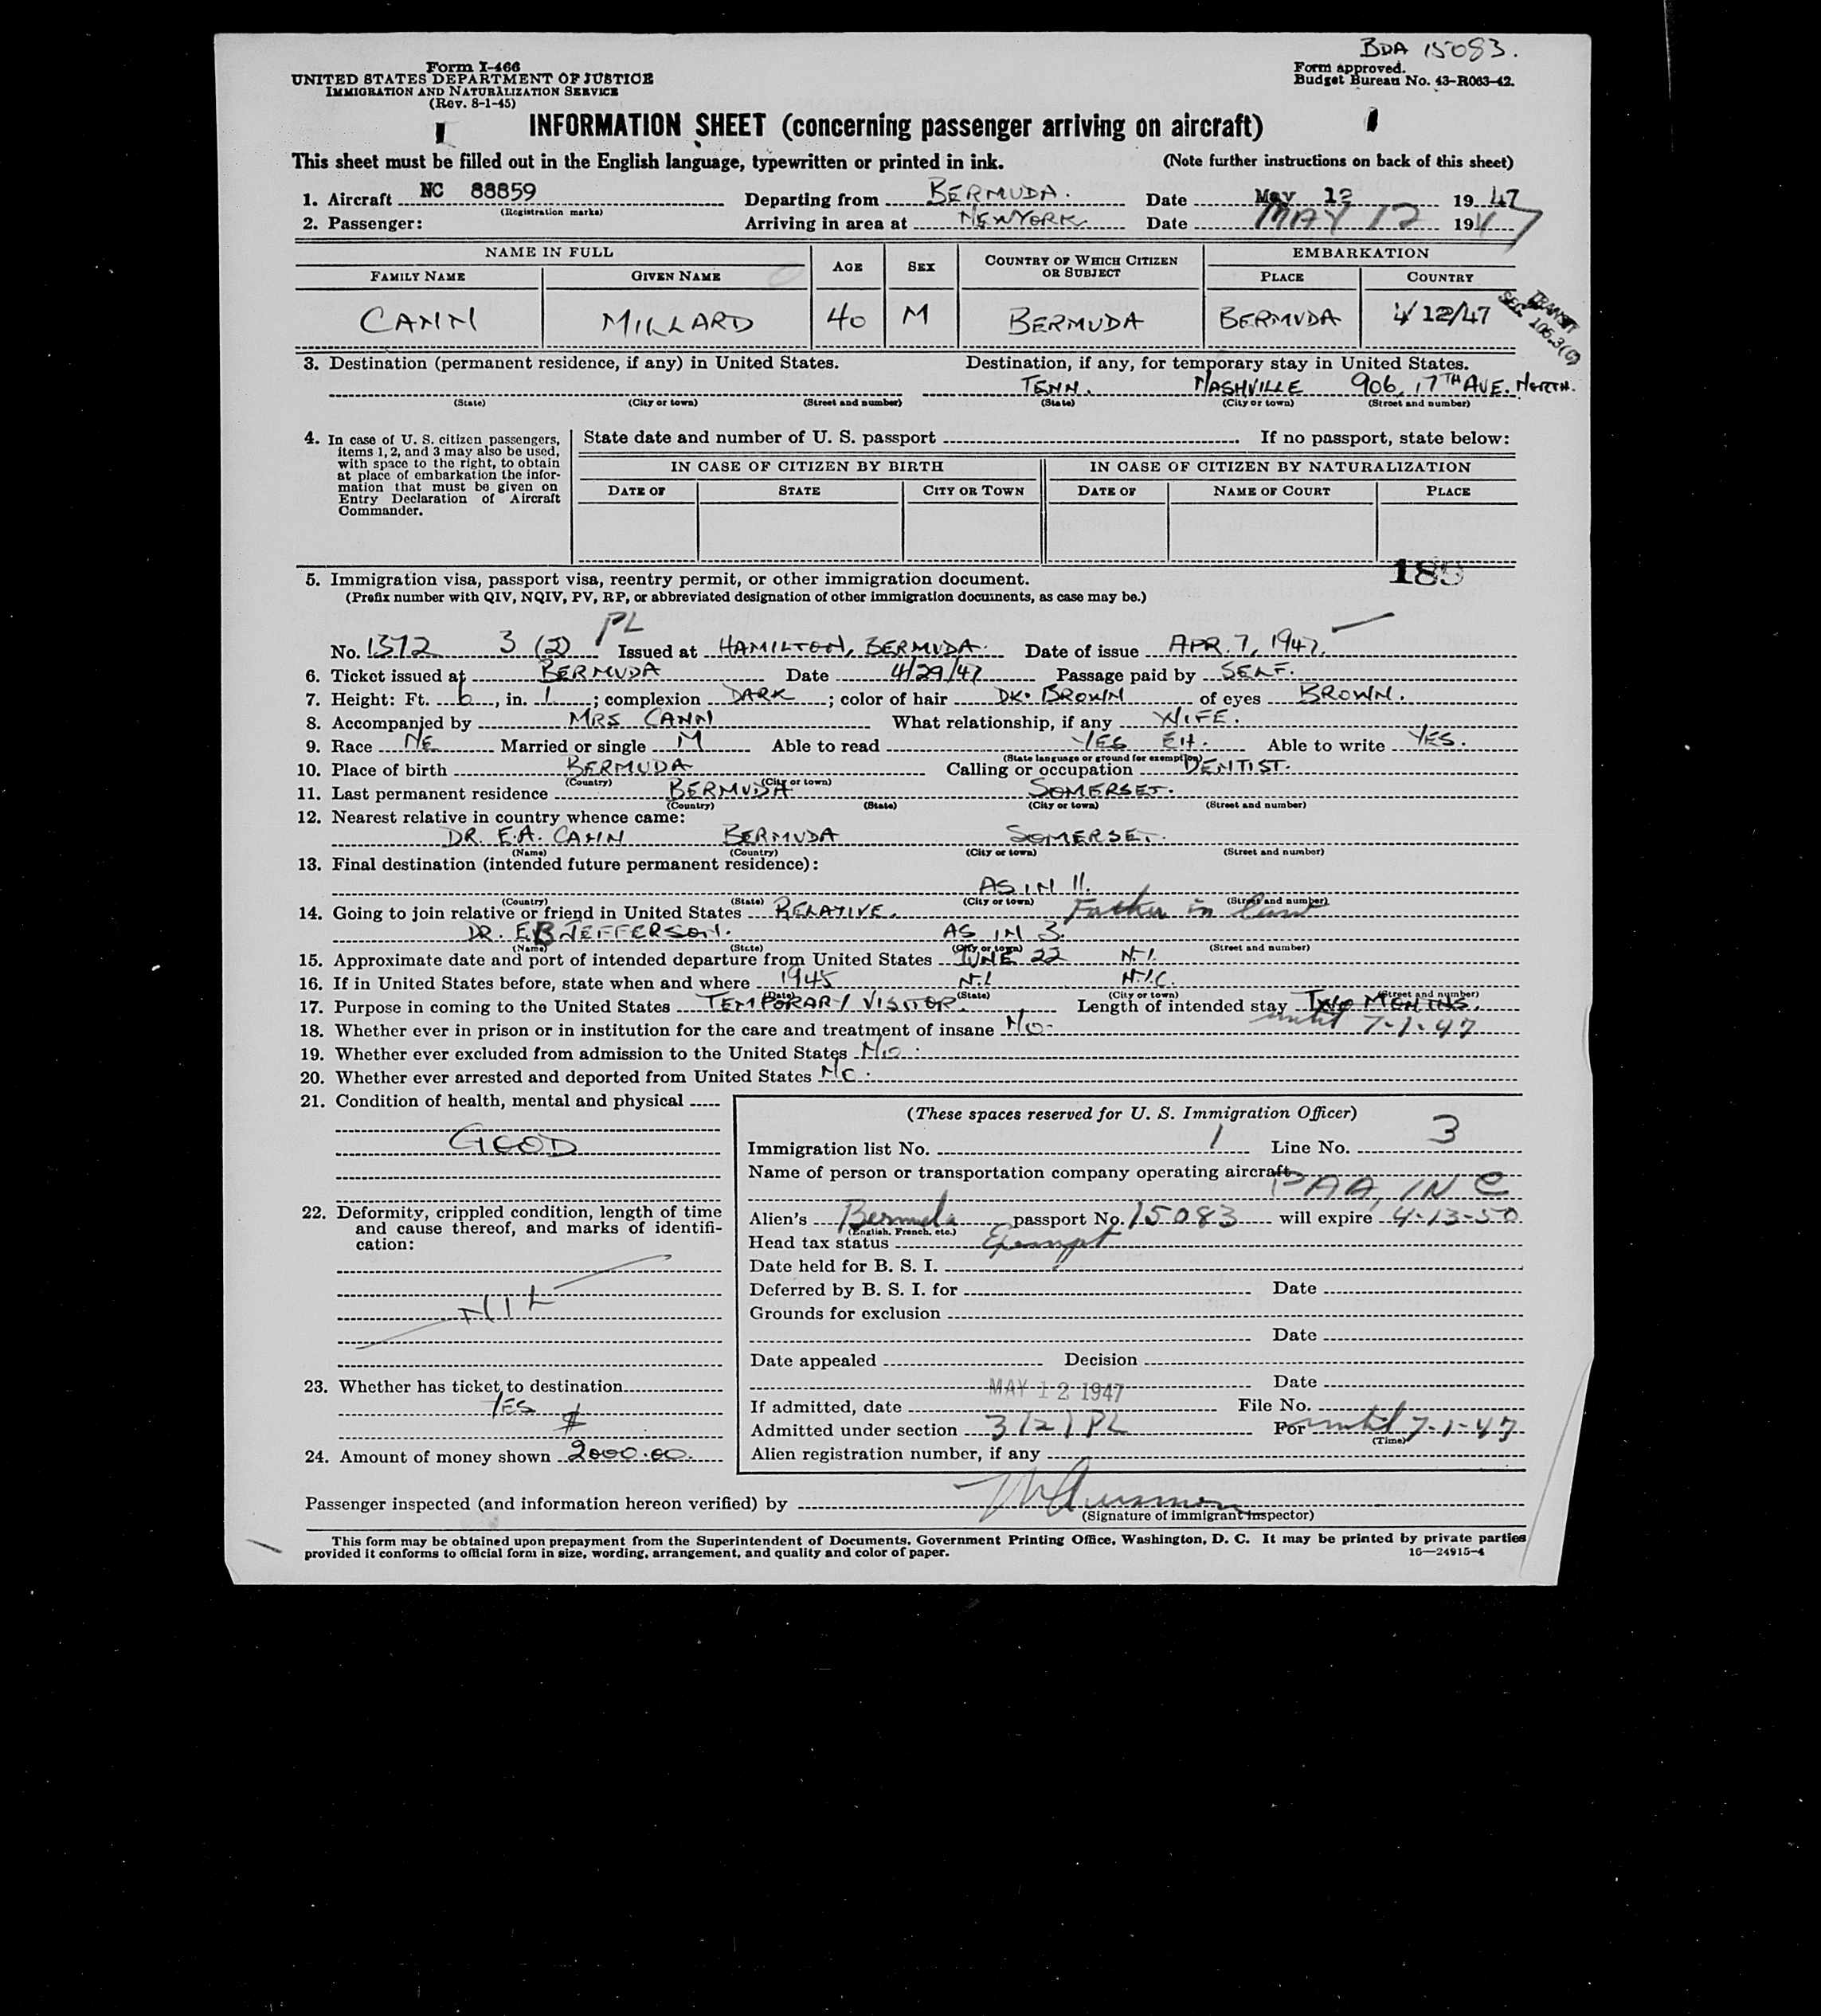 BDA 15083.
Form I-466
UNITED STATES DEPARTMENT OF JUSTICE
IMMIGRATION AND NATURALIZATION SERVICE
(Rev. 8-1-45)
Form approved.
Budget Bureau No. 43-R063-42.
INFORMATION SHEET (concerning passenger arriving on aircraft)
This sheet must be filled out in the English language, typewritten or printed in ink. (Note further instructions on back of this sheet)
1. Aircraft NC 88859 Departing from BERMUDA. Date May 12 1947
(Registration marks)
2. Passenger: Arriving in area at NEWYORK. Date MAY 12 1947
NAME IN FULL AGE SEX COUNTRY OF WHICH CITIZEN OR SUBJECT EMBARKATION
FAMILY NAME GIVEN NAME PLACE COUNTRY
CANN MILLARD 40 M BERMUDA BERMUDA 4/12/47
TRANSIT
SEC. 106.3(c)
3. Destination (permanent residence, if any) in United States. Destination, if any, for temporary stay in United States.
TENN. NASHVILLE 906, 17TH AVE. NORTH.
(State) (City or town) (Street and number) (State) (City or town) (Street and number)
4. In case of U. S. citizen passengers, items 1, 2, and 3 may also be used, with space to the right, to obtain at place of embarkation the information that must be given on Entry Declaration of Aircraft Commander.
State date and number of U. S. passport If no passport, state below:
IN CASE OF CITIZEN BY BIRTH IN CASE OF CITIZEN BY NATURALIZATION
DATE OF STATE CITY OR TOWN DATE OF NAME OF COURT PLACE
189
5. Immigration visa, passport visa, reentry permit, or other immigration document.
(Prefix number with QIV, NQIV, PV, RP, or abbreviated designation of other immigration documents, as case may be.)
PL
No. 1372 3 (2) Issued at HAMILTON, BERMUDA. Date of issue APR. 7, 1947.
6. Ticket issued at BERMUDA Date 4/29/47 Passage paid by SELF.
7. Height: Ft. 6, in. 1; complexion DARK; color of hair DK. BROWN of eyes BROWN.
8. Accompanied by MRS CANN What relationship, if any WIFE.
9. Race NE Married or single M Able to read YES EH. Able to write YES.
(State language or ground for exemption)
10. Place of birth BERMUDA Calling or occupation DENTIST.
(Country) (City or town)
11. Last permanent residence BERMUDA SOMERSET.
(Country) (State) (City or town) (Street and number)
12. Nearest relative in country whence came:
DR. E.A. CANN BERMUDA SOMERSET.
(Name) (Country) (City or town) (Street and number)
13. Final destination (intended future permanent residence):
AS IN 11.
(Country) (State) (City or town) (Street and number)
14. Going to join relative or friend in United States RELATIVE. Father in law
DR. EB JEFFERSON. AS IN 3.
(Name) (State) (City or town) (Street and number)
15. Approximate date and port of intended departure from United States JUNE 22 N.Y.
16. If in United States before, state when and where 1945 N.Y. N.Y.C.
(Date) (State) (City or town) (Street and number)
17. Purpose in coming to the United States TEMPORARY VISITOR. Length of intended stay TWO MONTHS.
until 7-1-47
18. Whether ever in prison or in institution for the care and treatment of insane NO.
19. Whether ever excluded from admission to the United States NO.
20. Whether ever arrested and deported from United States NO.
21. Condition of health, mental and physical
GOOD
22. Deformity, crippled condition, length of time and cause thereof, and marks of identification:
NIL
23. Whether has ticket to destination
YES
$
24. Amount of money shown 2000.00.
(These spaces reserved for U. S. Immigration Officer)
Immigration list No. 1 Line No. 3
Name of person or transportation company operating aircraft
PAA, INC
Alien's Bermuda passport No. 15083 will expire 4-13-50
(English, French, etc.)
Head tax status Exempt
Date held for B. S. I.
Deferred by B. S. I. for Date
Grounds for exclusion
Date
Date appealed Decision
Date
MAY 12 1947
If admitted, date File No.
Admitted under section 3(2) PL For until 7-1-47
(Time)
Alien registration number, if any
Passenger inspected (and information hereon verified) by
(Signature of immigrant inspector)
This form may be obtained upon prepayment from the Superintendent of Documents, Government Printing Office, Washington, D. C. It may be printed by private parties
provided it conforms to official form in size, wording, arrangement, and quality and color of paper. 16—24915-4